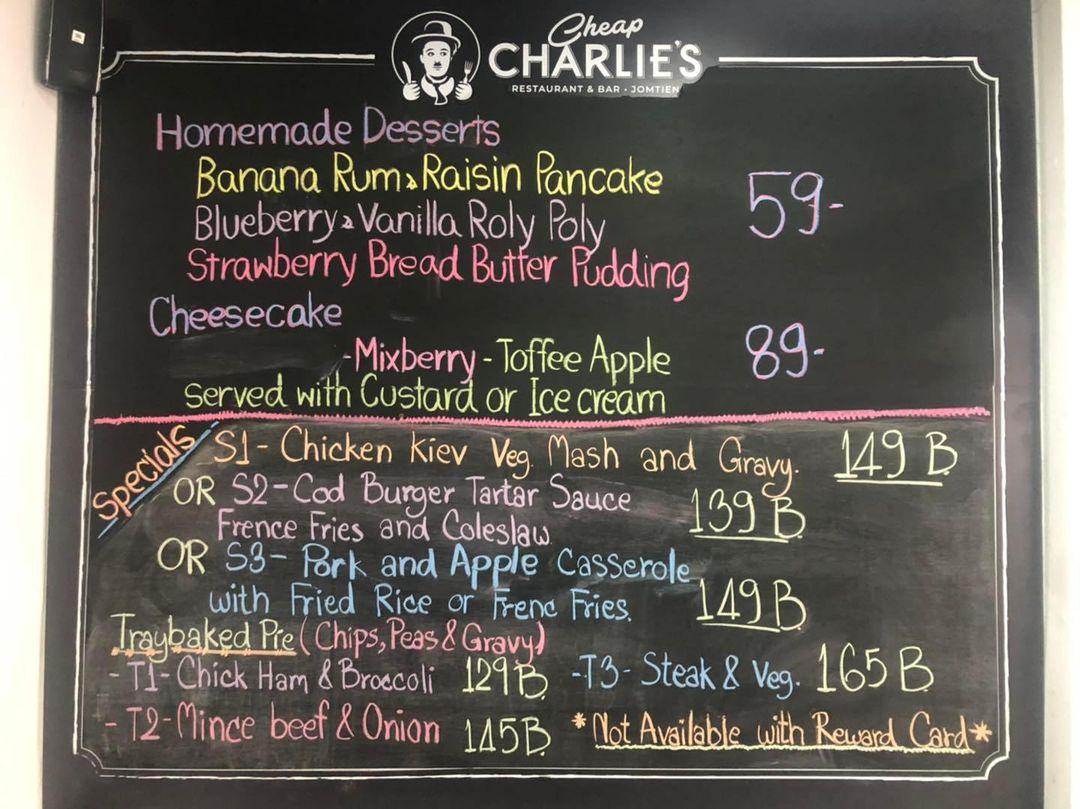 Cheap
CHARLIE'S
RESTAURANT & BAR · JOMTIEN
Homemade Desserts
Banana Rum & Raisin Pancake
59-
Blueberry & Vanilla Roly Poly
Strawberry Bread Butter Pudding
Cheesecake
-Mixberry - Toffee Apple
89-
Served with Custard or Ice cream
Specials
S1- Chicken Kiev Veg. Mash and Gravy. 149 B
OR S2- Cod Burger Tartar Sauce
Frence Fries and Coleslaw 139 B
OR S3- Pork and Apple Casserole
with Fried Rice or Frenc Fries. 149 B
Traybaked Pie (Chips, Peas & Gravy)
- T1- Chick Ham & Broccoli 129 B -T3- Steak & Veg. 165 B
- T2- Mince beef & Onion 145 B *Not Available with Reward Card*